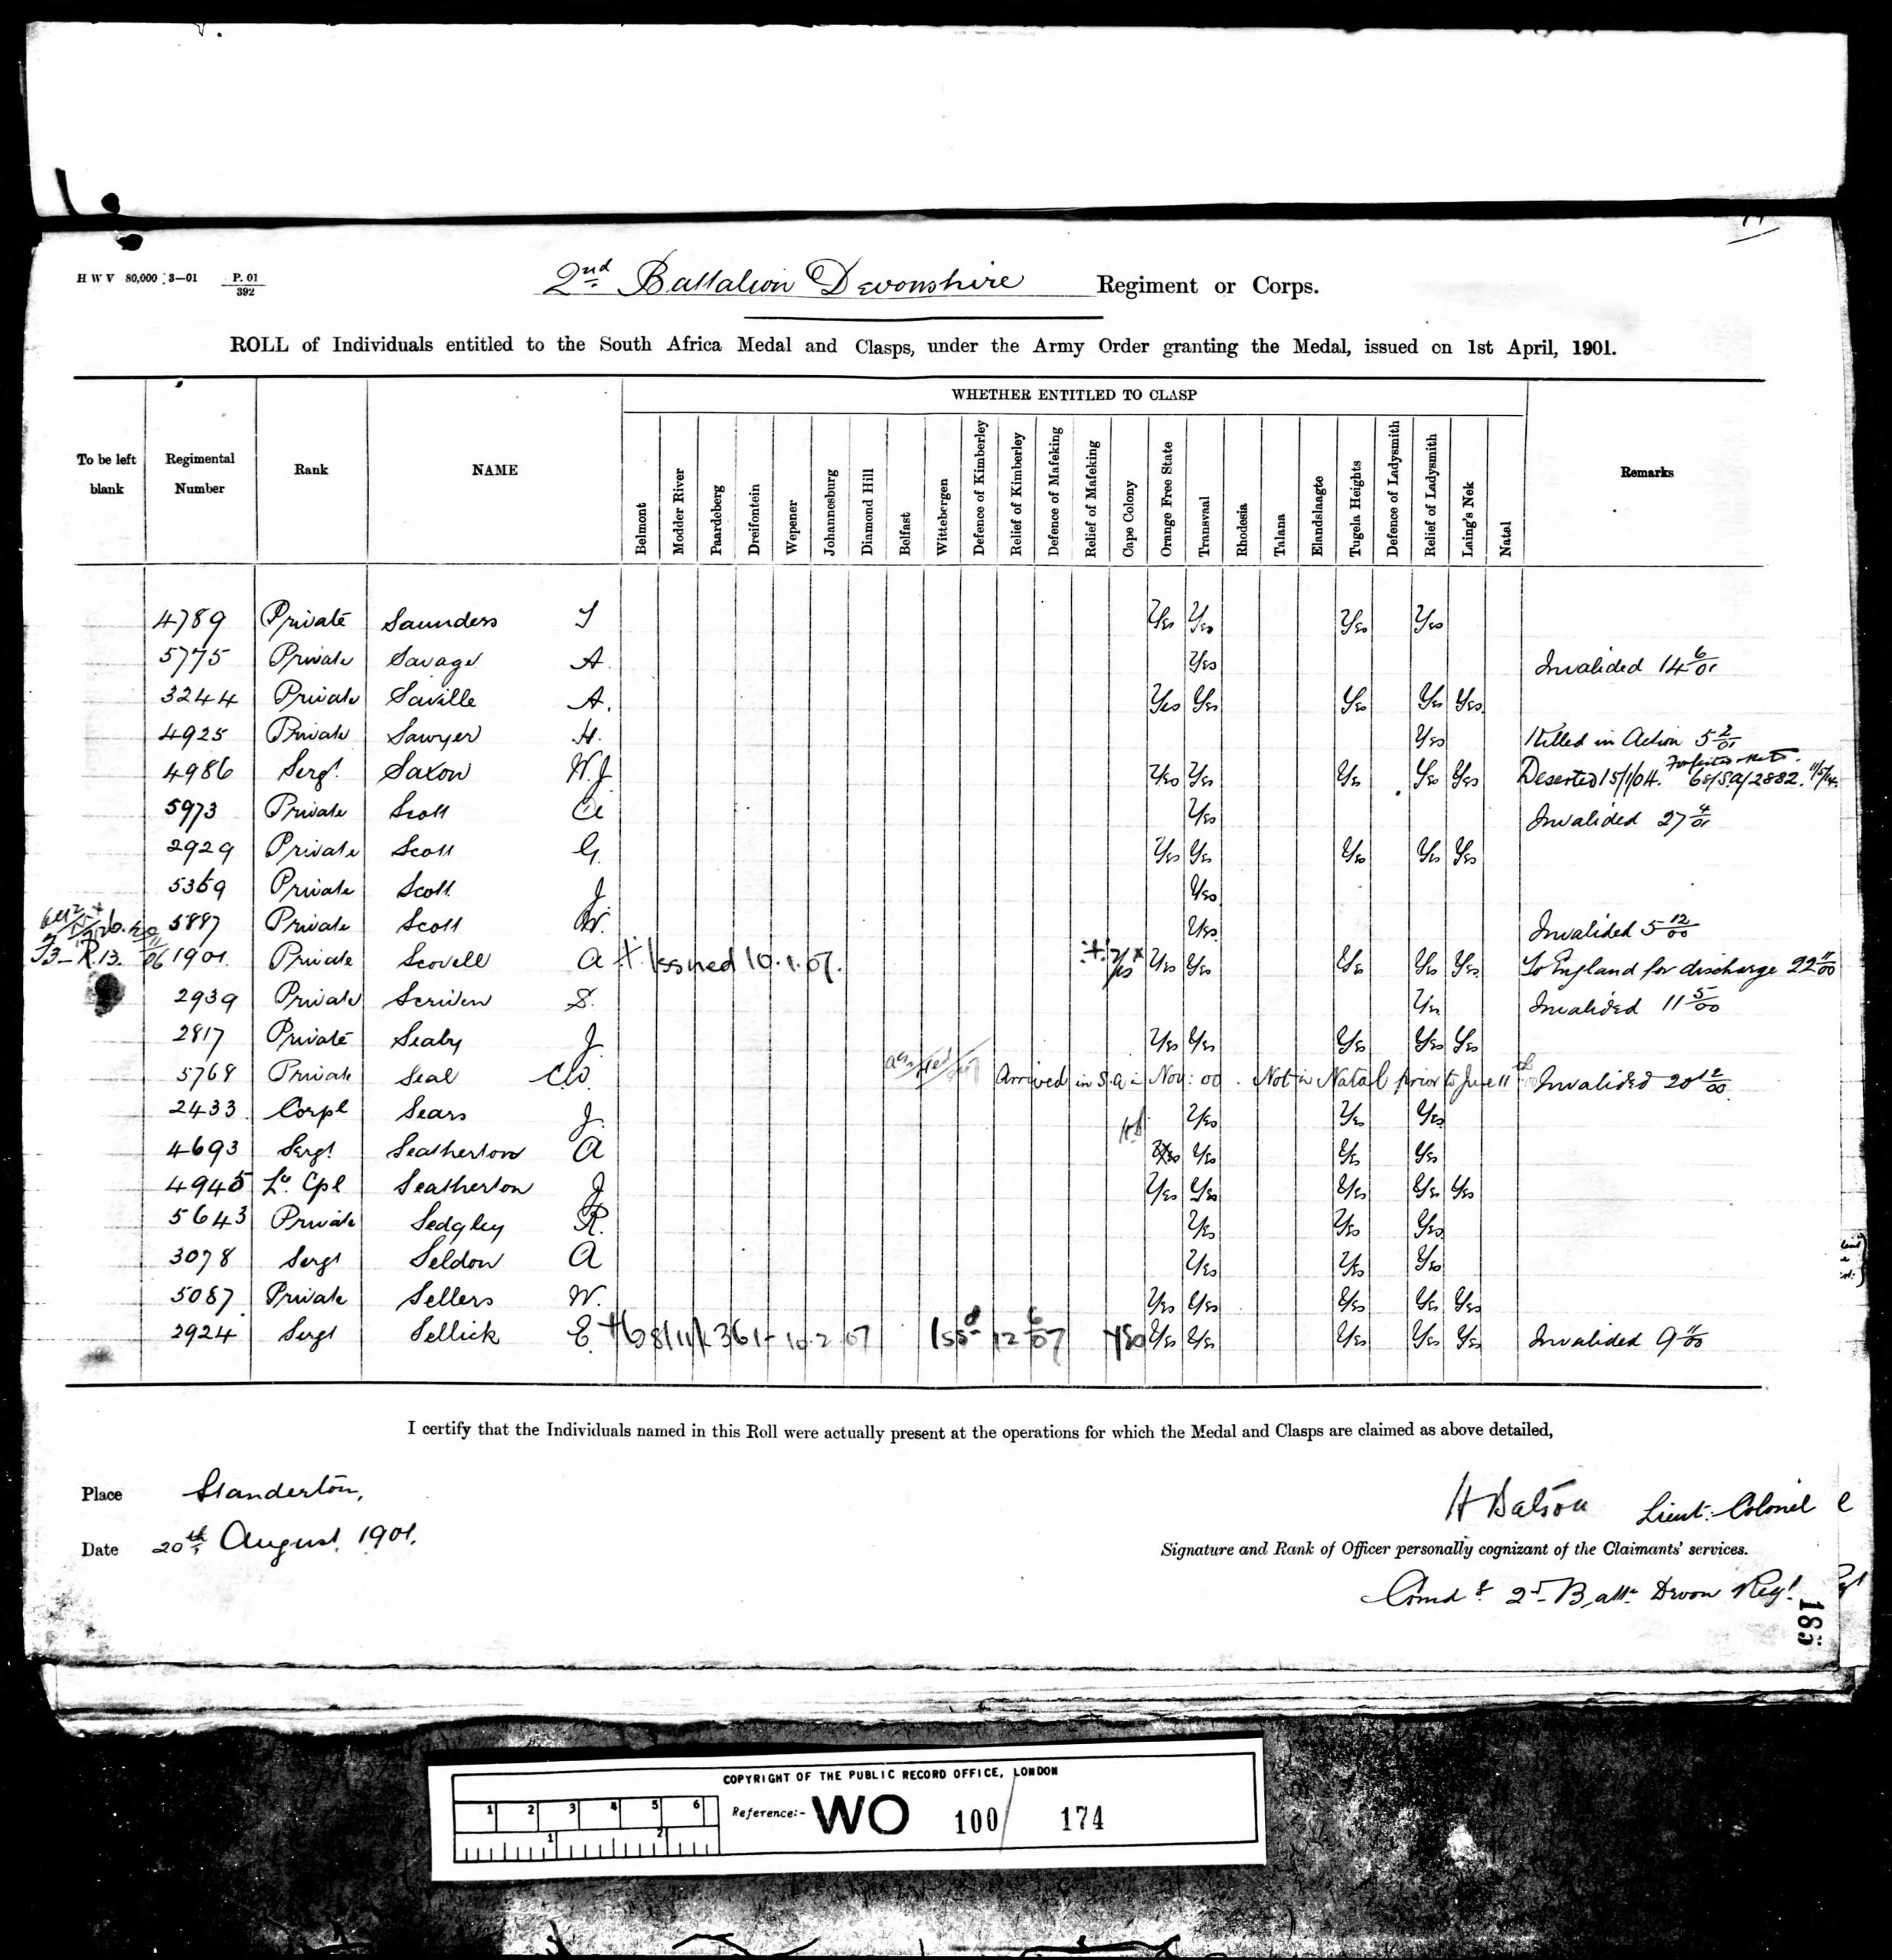 H W V 80,000 3—01 P. 01/392
2nd Battalion Devonshire Regiment or Corps.
ROLL of Individuals entitled to the South Africa Medal and Clasps, under the Army Order granting the Medal, issued on 1st April, 1901.
WHETHER ENTITLED TO CLASP
To be left blank Regimental Number Rank NAME Belmont Modder River Paardeberg Dreifontein Wepener Johannesburg Diamond Hill Belfast Wittebergen Defence of Kimberley Relief of Kimberley Defence of Mafeking Relief of Mafeking Cape Colony Orange Free State Transvaal Rhodesia Talana Elandslaagte Tugela Heights Defence of Ladysmith Relief of Ladysmith Laing's Nek Natal Remarks
4789 Private Saunders Yes Yes Yes Yes
5775 Private Savage A. Yes Invalided 14 6/01
3244 Private Saville A. Yes Yes Yes Yes Yes
4925 Private Sawyer H. Yes Killed in Action 5 2/01
4986 Sergt. Saxon W.J Yes Yes Yes Yes Yes Deserted 15/1/04. 68/S.A/2882.
5973 Private Scott Yes Invalided 27 4/01
2929 Private Scott G. Yes Yes Yes Yes Yes
5369 Private Scott J Yes
5887 Private Scott W. Yes Invalided 5 12/00
1901. Private Scovell A + Issued 10.1.07. + Yes + Yes Yes Yes Yes Yes To England for discharge 22 11/00
2939 Private Scriven S. Yes Invalided 11 5/00
2817 Private Seaby J. Yes Yes Yes Yes Yes
5768 Private Seal Arrived in S.A in Nov: 00. Not in Natal prior to June 11th Invalided 20 12/00
2433 Corpl Sears J. Yes Yes Yes
4693 Sergt Seatherton A Yes Yes Yes Yes
4945 Lce. Cpl Seatherton J Yes Yes Yes Yes Yes
5643 Private Sedgley R. Yes Yes Yes
3078 Sergt Seldon A Yes Yes Yes
5087 Private Sellers W. Yes Yes Yes Yes Yes
2924 Sergt Sellick E. + 68/11/ 361- 10.2.07 Issd 12 6/07 Yes Yes Yes Yes Yes Yes Invalided 9 11/00
I certify that the Individuals named in this Roll were actually present at the operations for which the Medal and Clasps are claimed as above detailed,
Place Standerton,
Date 20th August, 1901.
H Batson Lieut: Colonel
Signature and Rank of Officer personally cognizant of the Claimants' services.
Comdg 2nd Battn Devon Regt.
185
COPYRIGHT OF THE PUBLIC RECORD OFFICE, LONDON
1 2 3 4 5 6
1 2
Reference:- WO 100/174